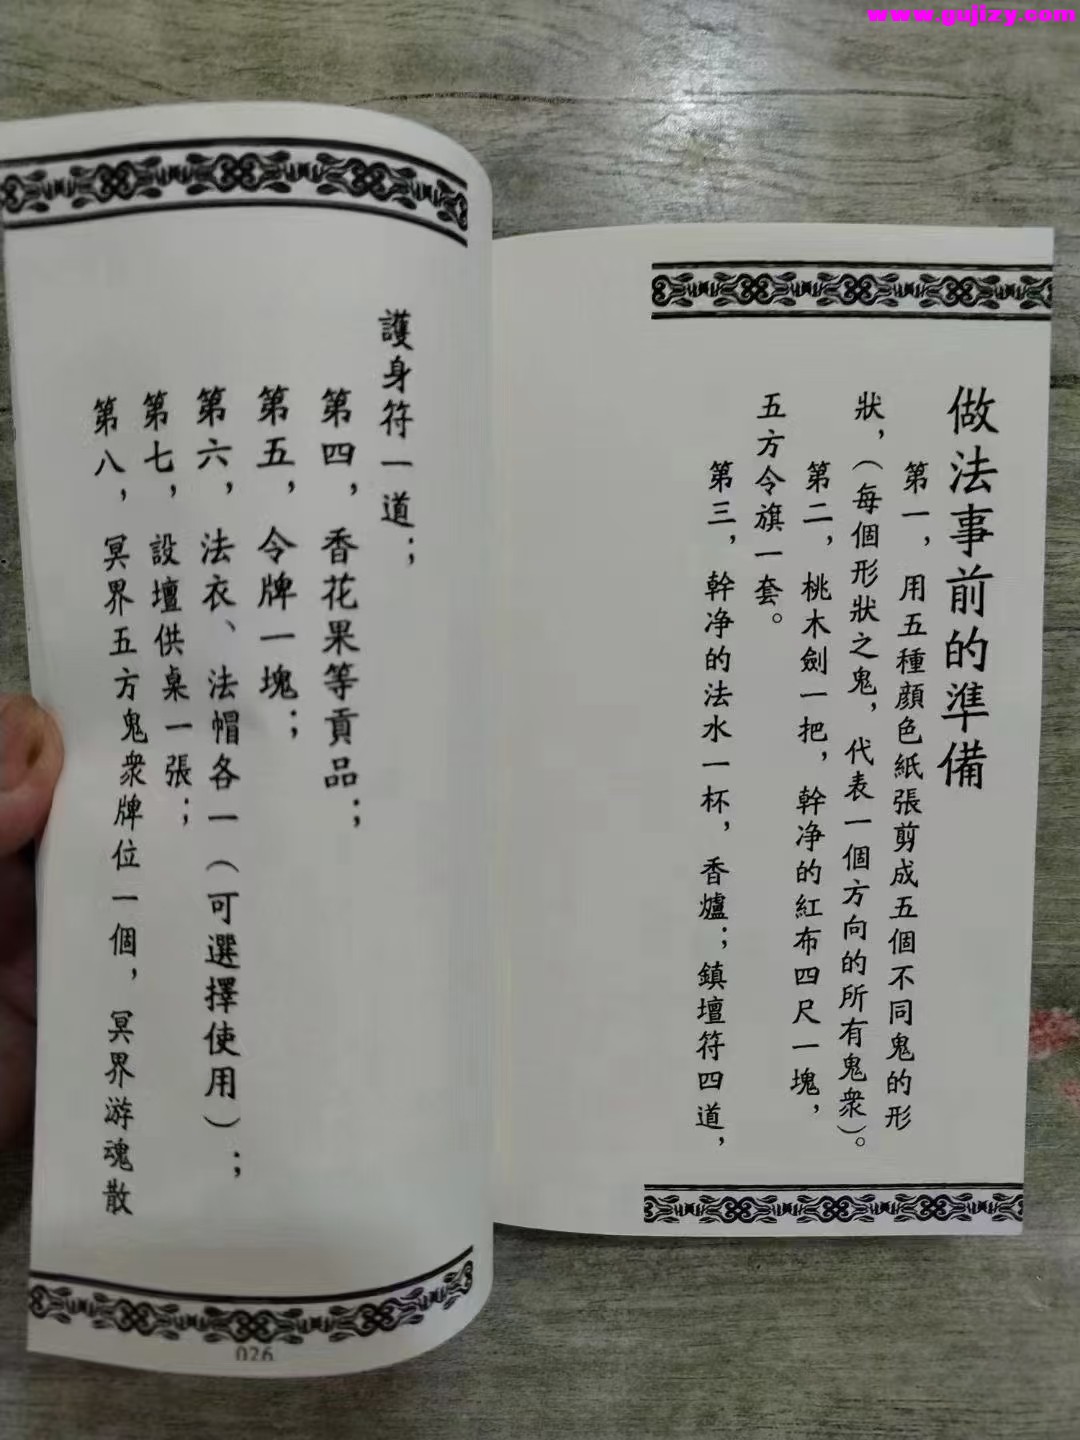 www.gujizy.com
做法事前的準備
第一，用五種顔色紙張剪成五個不同鬼的形
狀，（每個形狀之鬼，代表一個方向的所有鬼衆）。
第二，桃木劍一把，幹净的紅布四尺一塊，
五方令旗一套。
第三，幹净的法水一杯，香爐；鎮壇符四道，
護身符一道；
第四，香花果等貢品；
第五，令牌一塊；
第六，法衣、法帽各一（可選擇使用）；
第七，設壇供桌一張；
第八，冥界五方鬼衆牌位一個，冥界游魂散
026